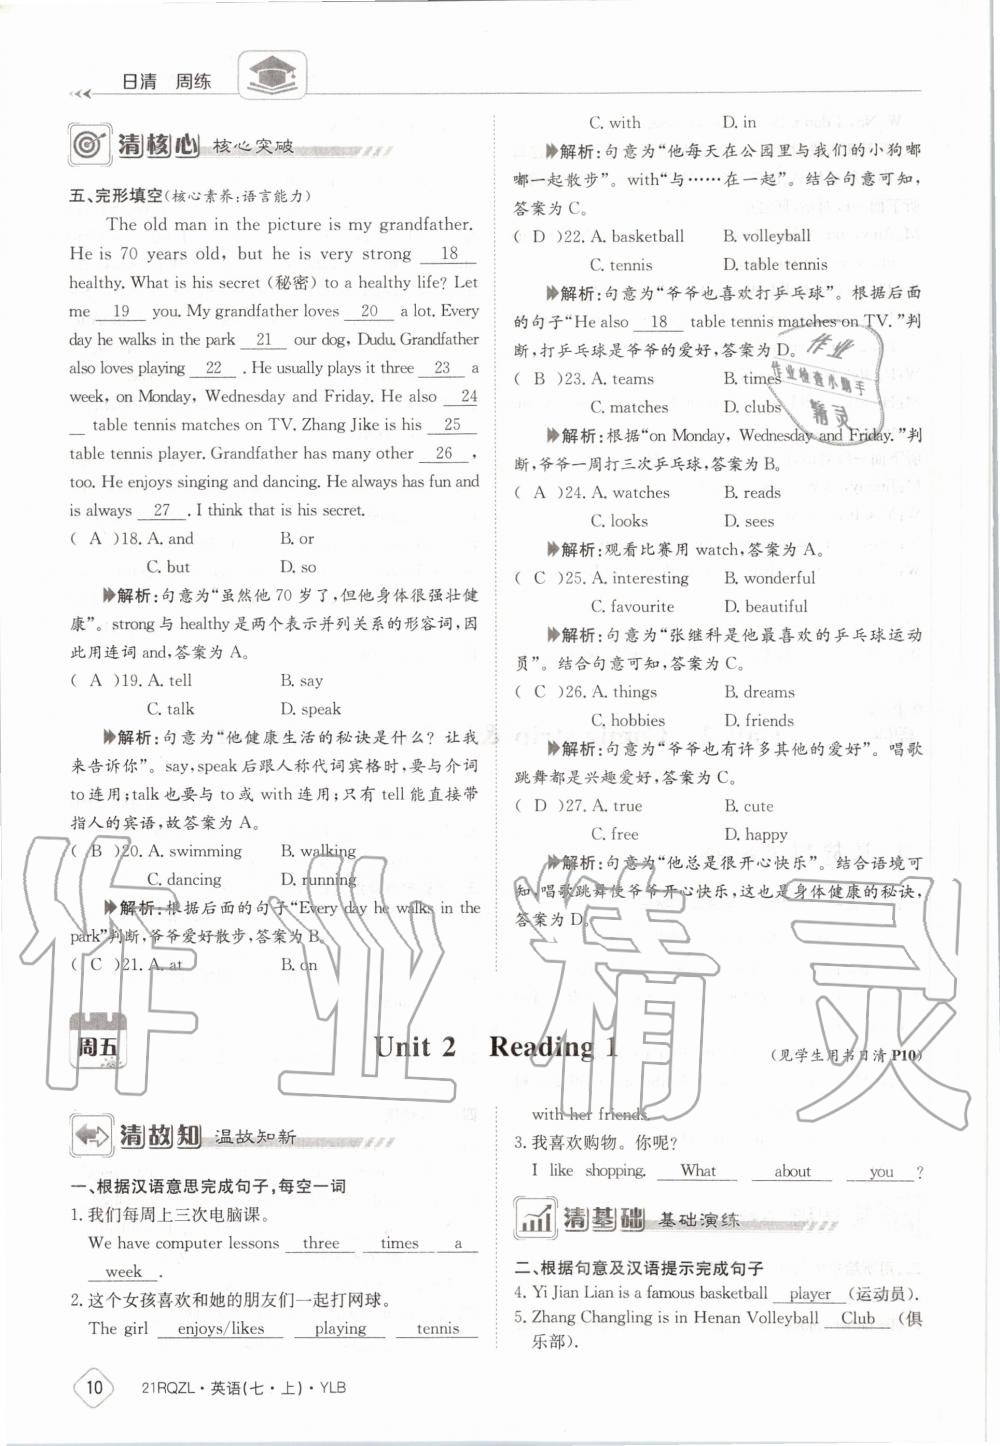 日清 周练
清核心 核心突破
五、完形填空(核心素养:语言能力)
The old man in the picture is my grandfather.
He is 70 years old, but he is very strong 18
healthy. What is his secret (秘密) to a healthy life? Let
me 19 you. My grandfather loves 20 a lot. Every
day he walks in the park 21 our dog, Dudu. Grandfather
also loves playing 22 . He usually plays it three 23 a
week, on Monday, Wednesday and Friday. He also 24
table tennis matches on TV. Zhang Jike is his 25
table tennis player. Grandfather has many other 26 ,
too. He enjoys singing and dancing. He always has fun and
is always 27 . I think that is his secret.
( A )18. A. and B. or
C. but D. so
解析:句意为“虽然他 70 岁了,但他身体很强壮健
康”。strong 与 healthy 是两个表示并列关系的形容词,因
此用连词 and,答案为 A。
( A )19. A. tell B. say
C. talk D. speak
解析:句意为“他健康生活的秘诀是什么?让我
来告诉你”。say, speak 后跟人称代词宾格时,要与介词
to 连用;talk 也要与 to 或 with 连用;只有 tell 能直接带
指人的宾语,故答案为 A。
( B )20. A. swimming B. walking
C. dancing D. running
解析:根据后面的句子“Every day he walks in the
park”判断,爷爷爱好散步,答案为 B。
( C )21. A. at B. on
C. with D. in
解析:句意为“他每天在公园里与我们的小狗嘟
嘟一起散步”。with“与……在一起”。结合句意可知,
答案为 C。
( D )22. A. basketball B. volleyball
C. tennis D. table tennis
解析:句意为“爷爷也喜欢打乒乓球”。根据后面
的句子“He also 18 table tennis matches on TV.”判
断,打乒乓球是爷爷的爱好,答案为 D。
( B )23. A. teams B. times
C. matches D. clubs
解析:根据“on Monday, Wednesday and Friday.”判
断,爷爷一周打三次乒乓球,答案为 B。
( A )24. A. watches B. reads
C. looks D. sees
解析:观看比赛用 watch,答案为 A。
( C )25. A. interesting B. wonderful
C. favourite D. beautiful
解析:句意为“张继科是他最喜欢的乒乓球运动
员”。结合句意可知,答案为 C。
( C )26. A. things B. dreams
C. hobbies D. friends
解析:句意为“爷爷也有许多其他的爱好”。唱歌
跳舞都是兴趣爱好,答案为 C。
( D )27. A. true B. cute
C. free D. happy
解析:句意为“他总是很开心快乐”。结合语境可
知,唱歌跳舞使爷爷开心快乐,这也是身体健康的秘诀,
答案为 D。
作业
作业检查小助手
精灵
作业精灵
周五
Unit 2 Reading 1
(见学生用书日清 P10)
清故知 温故知新
一、根据汉语意思完成句子,每空一词
1. 我们每周上三次电脑课。
We have computer lessons three times a
week .
2. 这个女孩喜欢和她的朋友们一起打网球。
The girl enjoys/likes playing tennis
with her friends.
3. 我喜欢购物。你呢?
I like shopping. What about you ?
清基础 基础演练
二、根据句意及汉语提示完成句子
4. Yi Jian Lian is a famous basketball player (运动员).
5. Zhang Changling is in Henan Volleyball Club (俱
乐部).
10 21RQZL·英语(七·上)·YLB